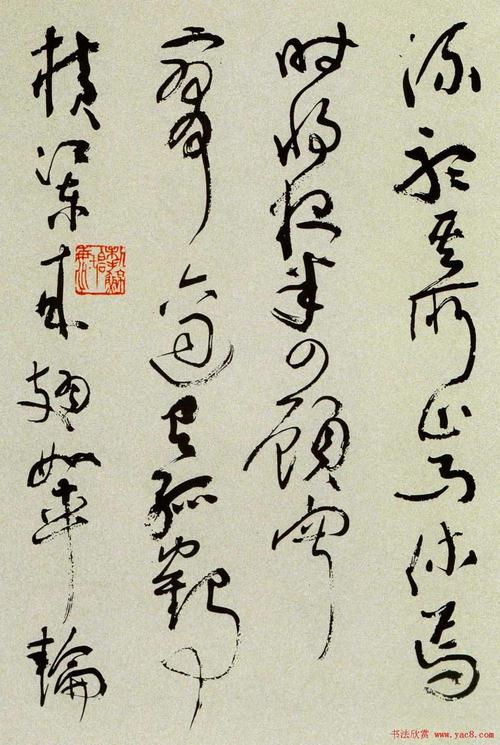 流聽其所止而休焉
时将夜半四顧寂
寥適有孤鶴
横江東來翅如車輪
书法欣赏 www.yac8.com